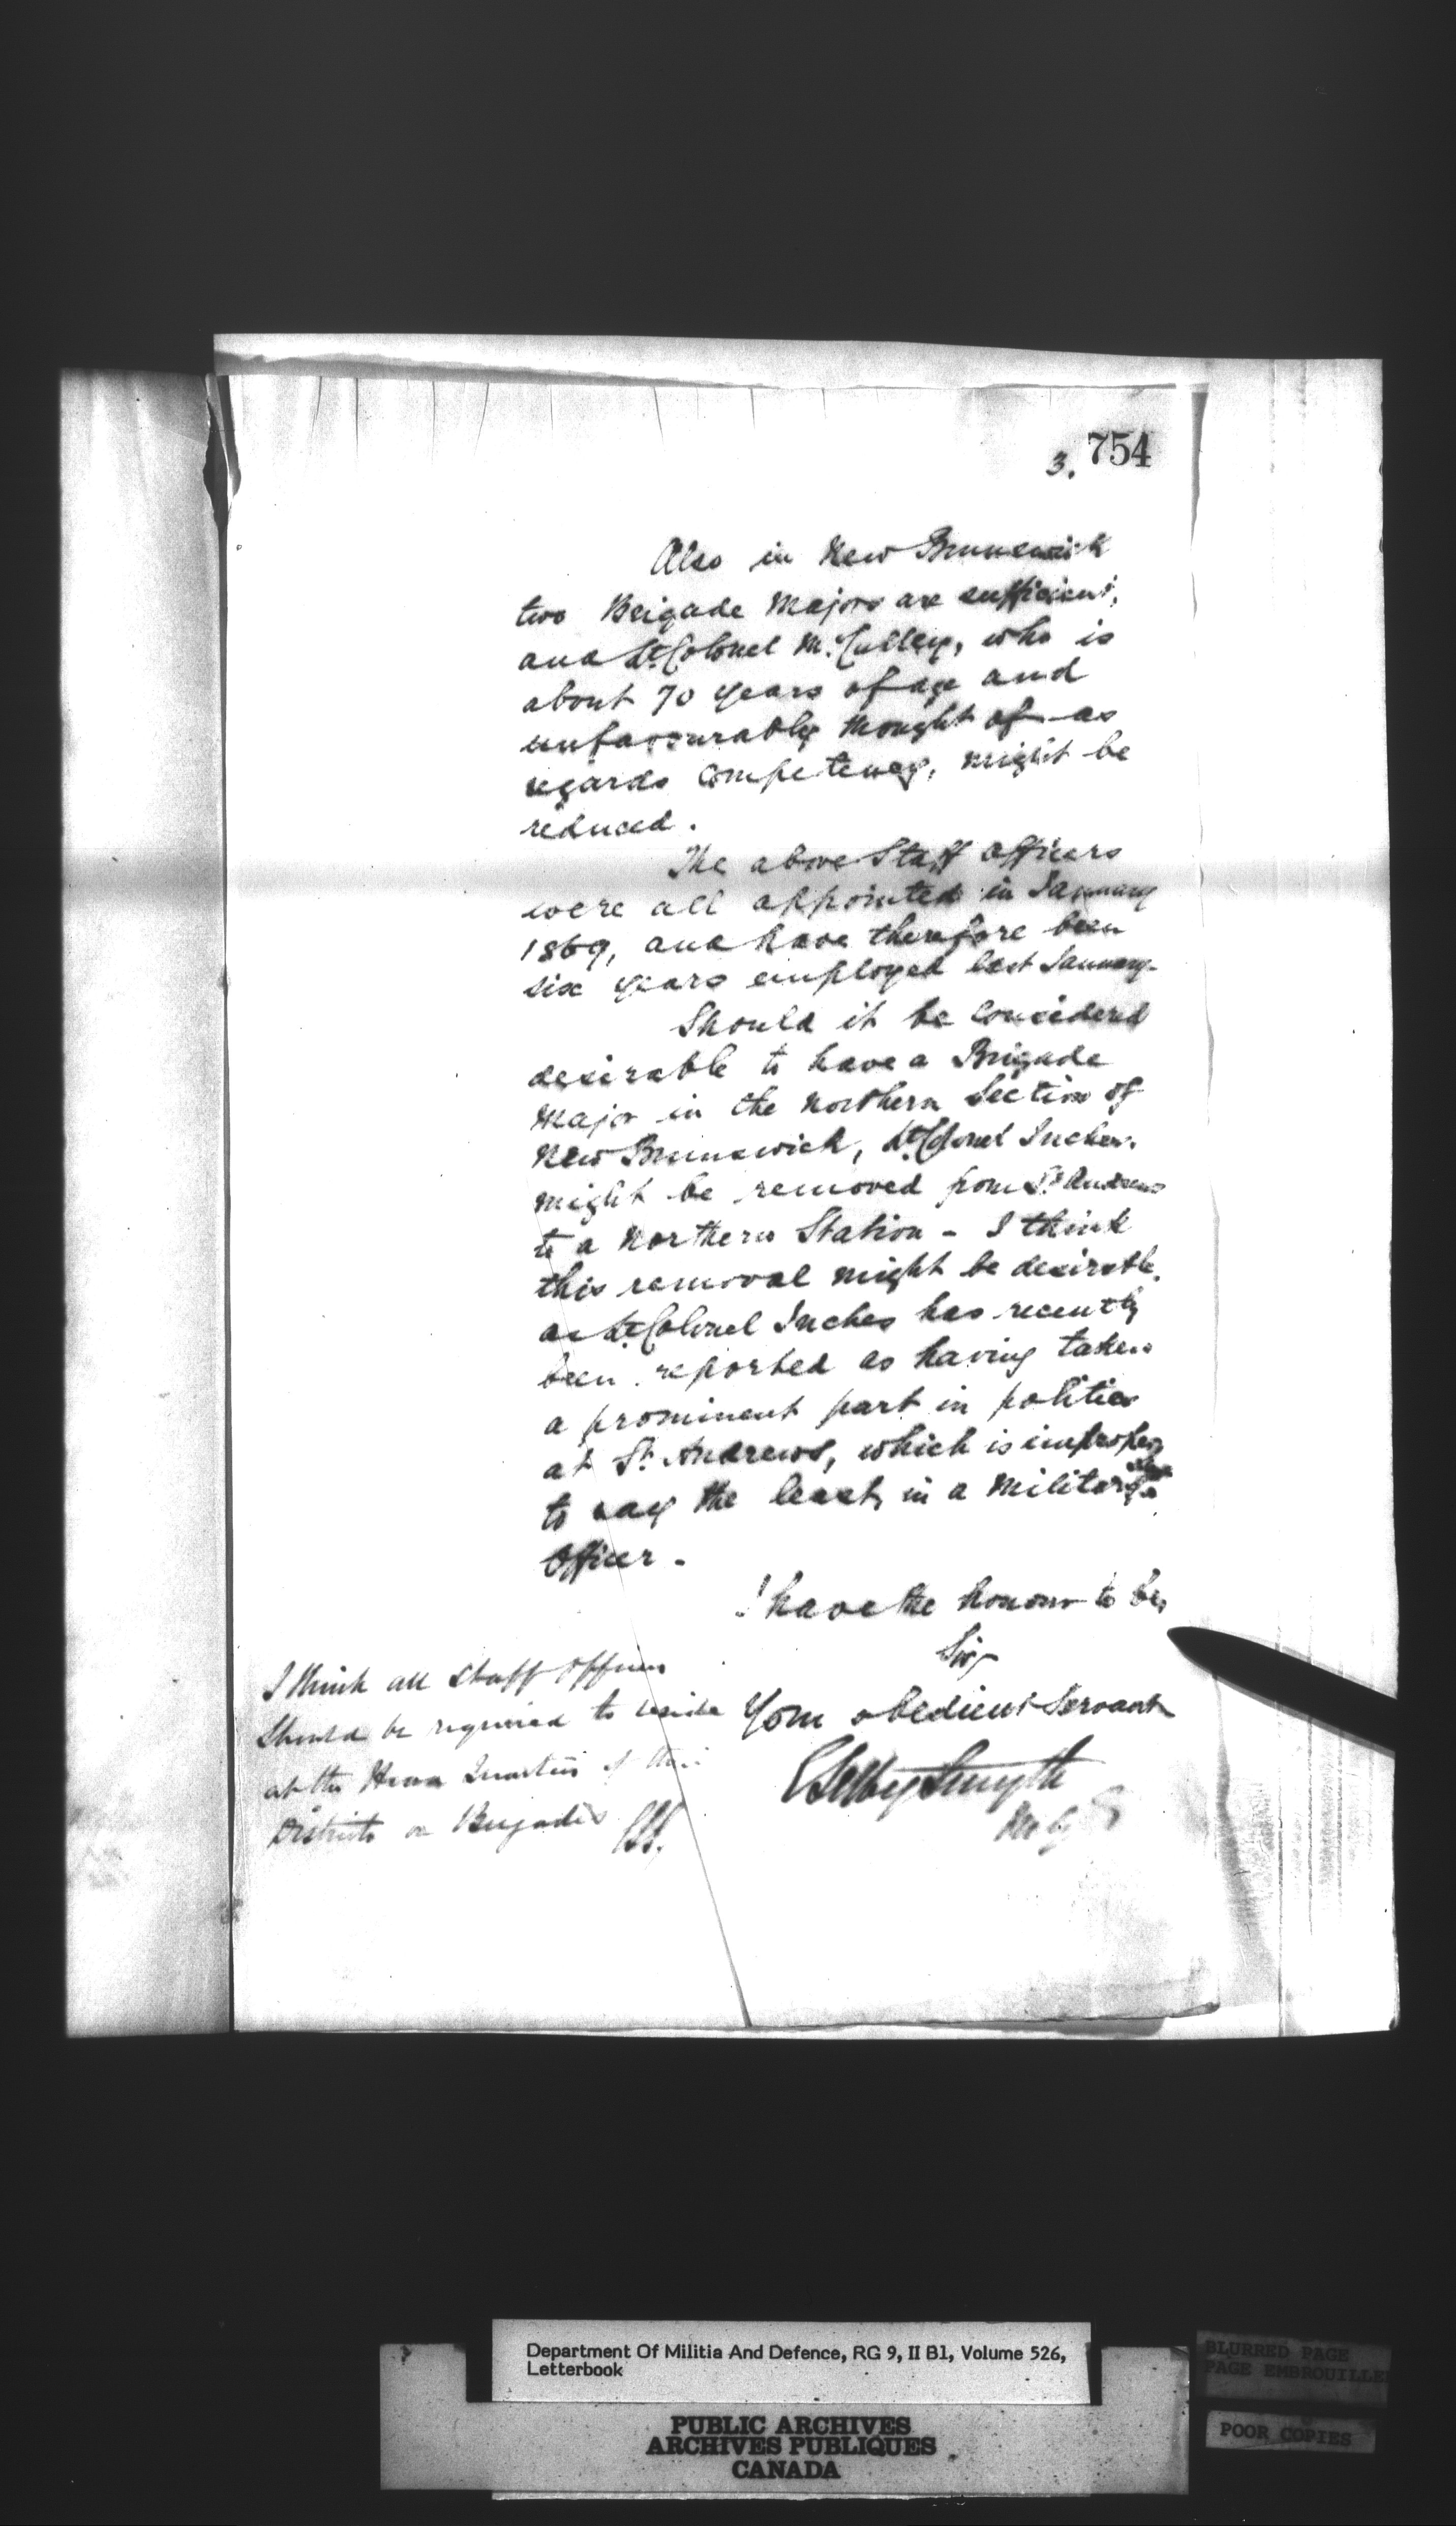 3. 754
Also in New Brunswick
two Brigade Majors are sufficient,
and Lt. Colonel McCulley, who is
about 70 years of age and
unfavourably thought of as
regards competency, might be
reduced.
The above Staff officers
were all appointed in January
1869, and have therefore been
six years employed last January.
Should it be considered
desirable to have a Brigade
Major in the Northern Section of
New Brunswick, Lt. Colonel Inches
might be removed from St. Andrews
to a Northern Station - I think
this removal might be desirable,
as Lt. Colonel Inches has recently
been reported as having taken
a prominent part in politics
at St. Andrews, which is improper,
to say the least, in a Military
Officer -
I have the honour to be,
Sir,
Your obedient Servant
E Selby Smyth
I think all Staff Officers
should be required to reside
at the Head Quarters of their
Districts or Brigades
Department Of Militia And Defence, RG 9, II B1, Volume 526,
Letterbook
PUBLIC ARCHIVES
ARCHIVES PUBLIQUES
CANADA
BLURRED PAGE
PAGE EMBROUILLEE
POOR COPIES